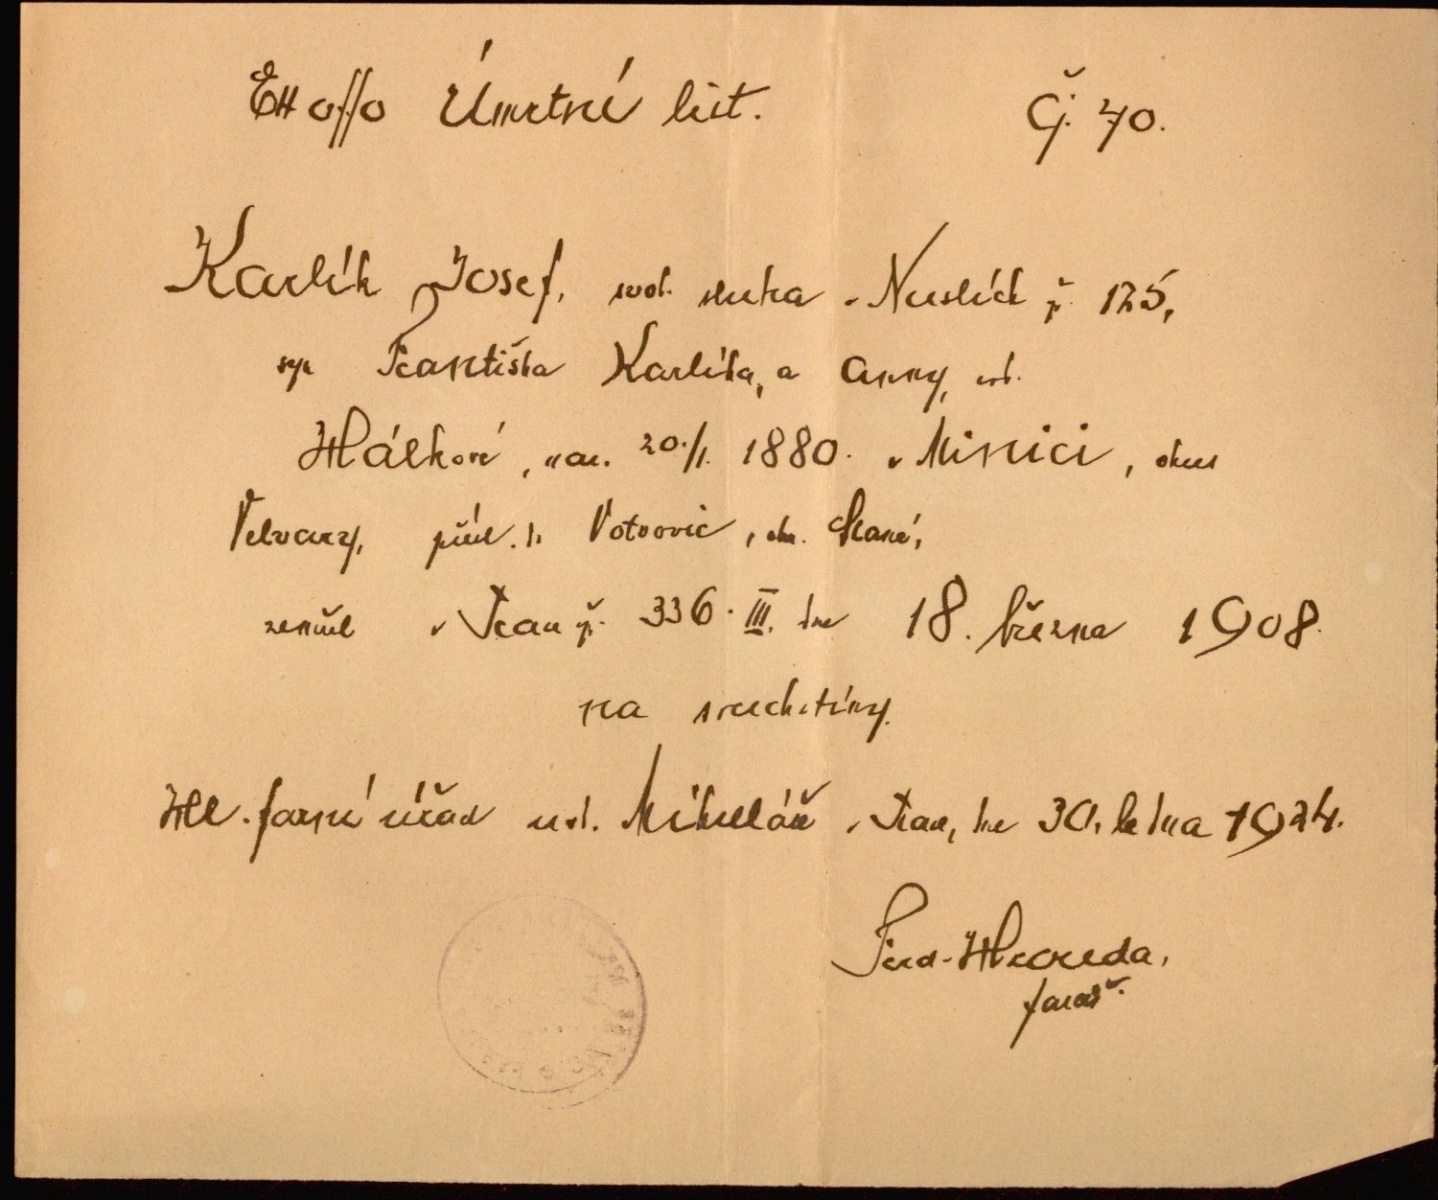 Ex offo Úmrtní list. Čj. 70.
Karlík Josef, svob. sluha v Nuslích čp. 125,
syn Františka Karlíka, a Anny, roz.
Hálkové, nar. 20./1. 1880. v Minici, okres
Velvary, přísl. k Votvovic, okr. Slaný,
zemřel v Praze čp. 336. III. dne 18. března 1908.
na souchotiny.
Hl. farní úřad u sv. Mikuláše v Praze, dne 30. ledna 1924.
Ferd. Hrouda,
farář.